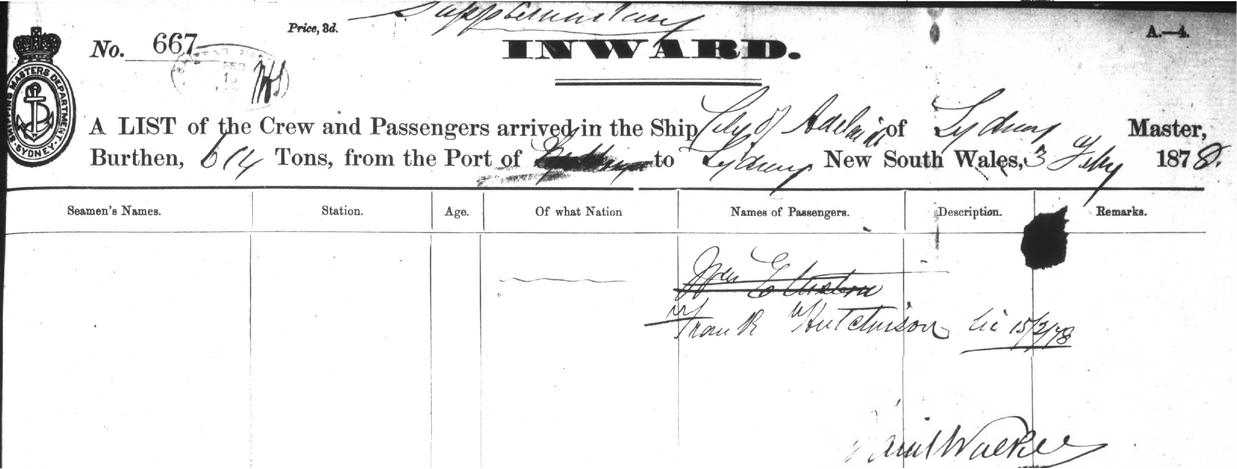 Supplementary
Price, 3d.
A.—4.
No. 667
INWARD.
SHIPPING MASTERS DEPARTMENT SYDNEY
A LIST of the Crew and Passengers arrived in the Ship City of Adelaide of Sydney Master,
Burthen, 614 Tons, from the Port of to Sydney New South Wales, 3 Feby 1878.
Seamen's Names. Station. Age. Of what Nation Names of Passengers. Description. Remarks.
Frank Hutchinson Lic 15/2/78
Walker